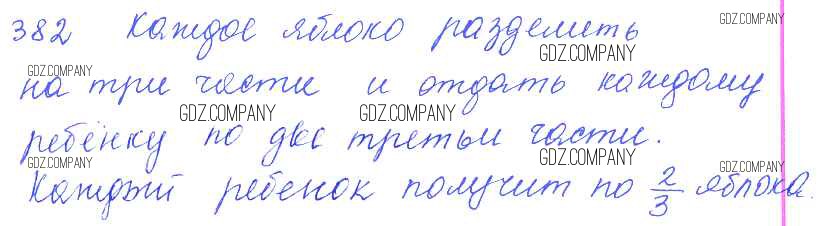 382 Каждое яблоко разделить
на три части и отдать каждому
ребёнку по две третьи части.
Каждый ребенок получит по 2/3 яблока.
GDZ.COMPANY
GDZ.COMPANY
GDZ.COMPANY
GDZ.COMPANY
GDZ.COMPANY
GDZ.COMPANY
GDZ.COMPANY
GDZ.COMPANY
GDZ.COMPANY
GDZ.COMPANY